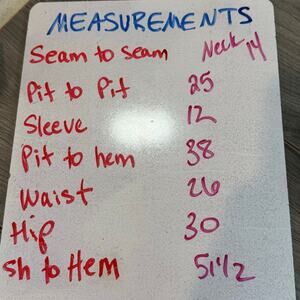 MEASUREMENTS
Seam to seam Neck 14
Pit to Pit 25
Sleeve 12
Pit to hem 38
Waist 26
Hip 30
sh to Hem 51 1/2